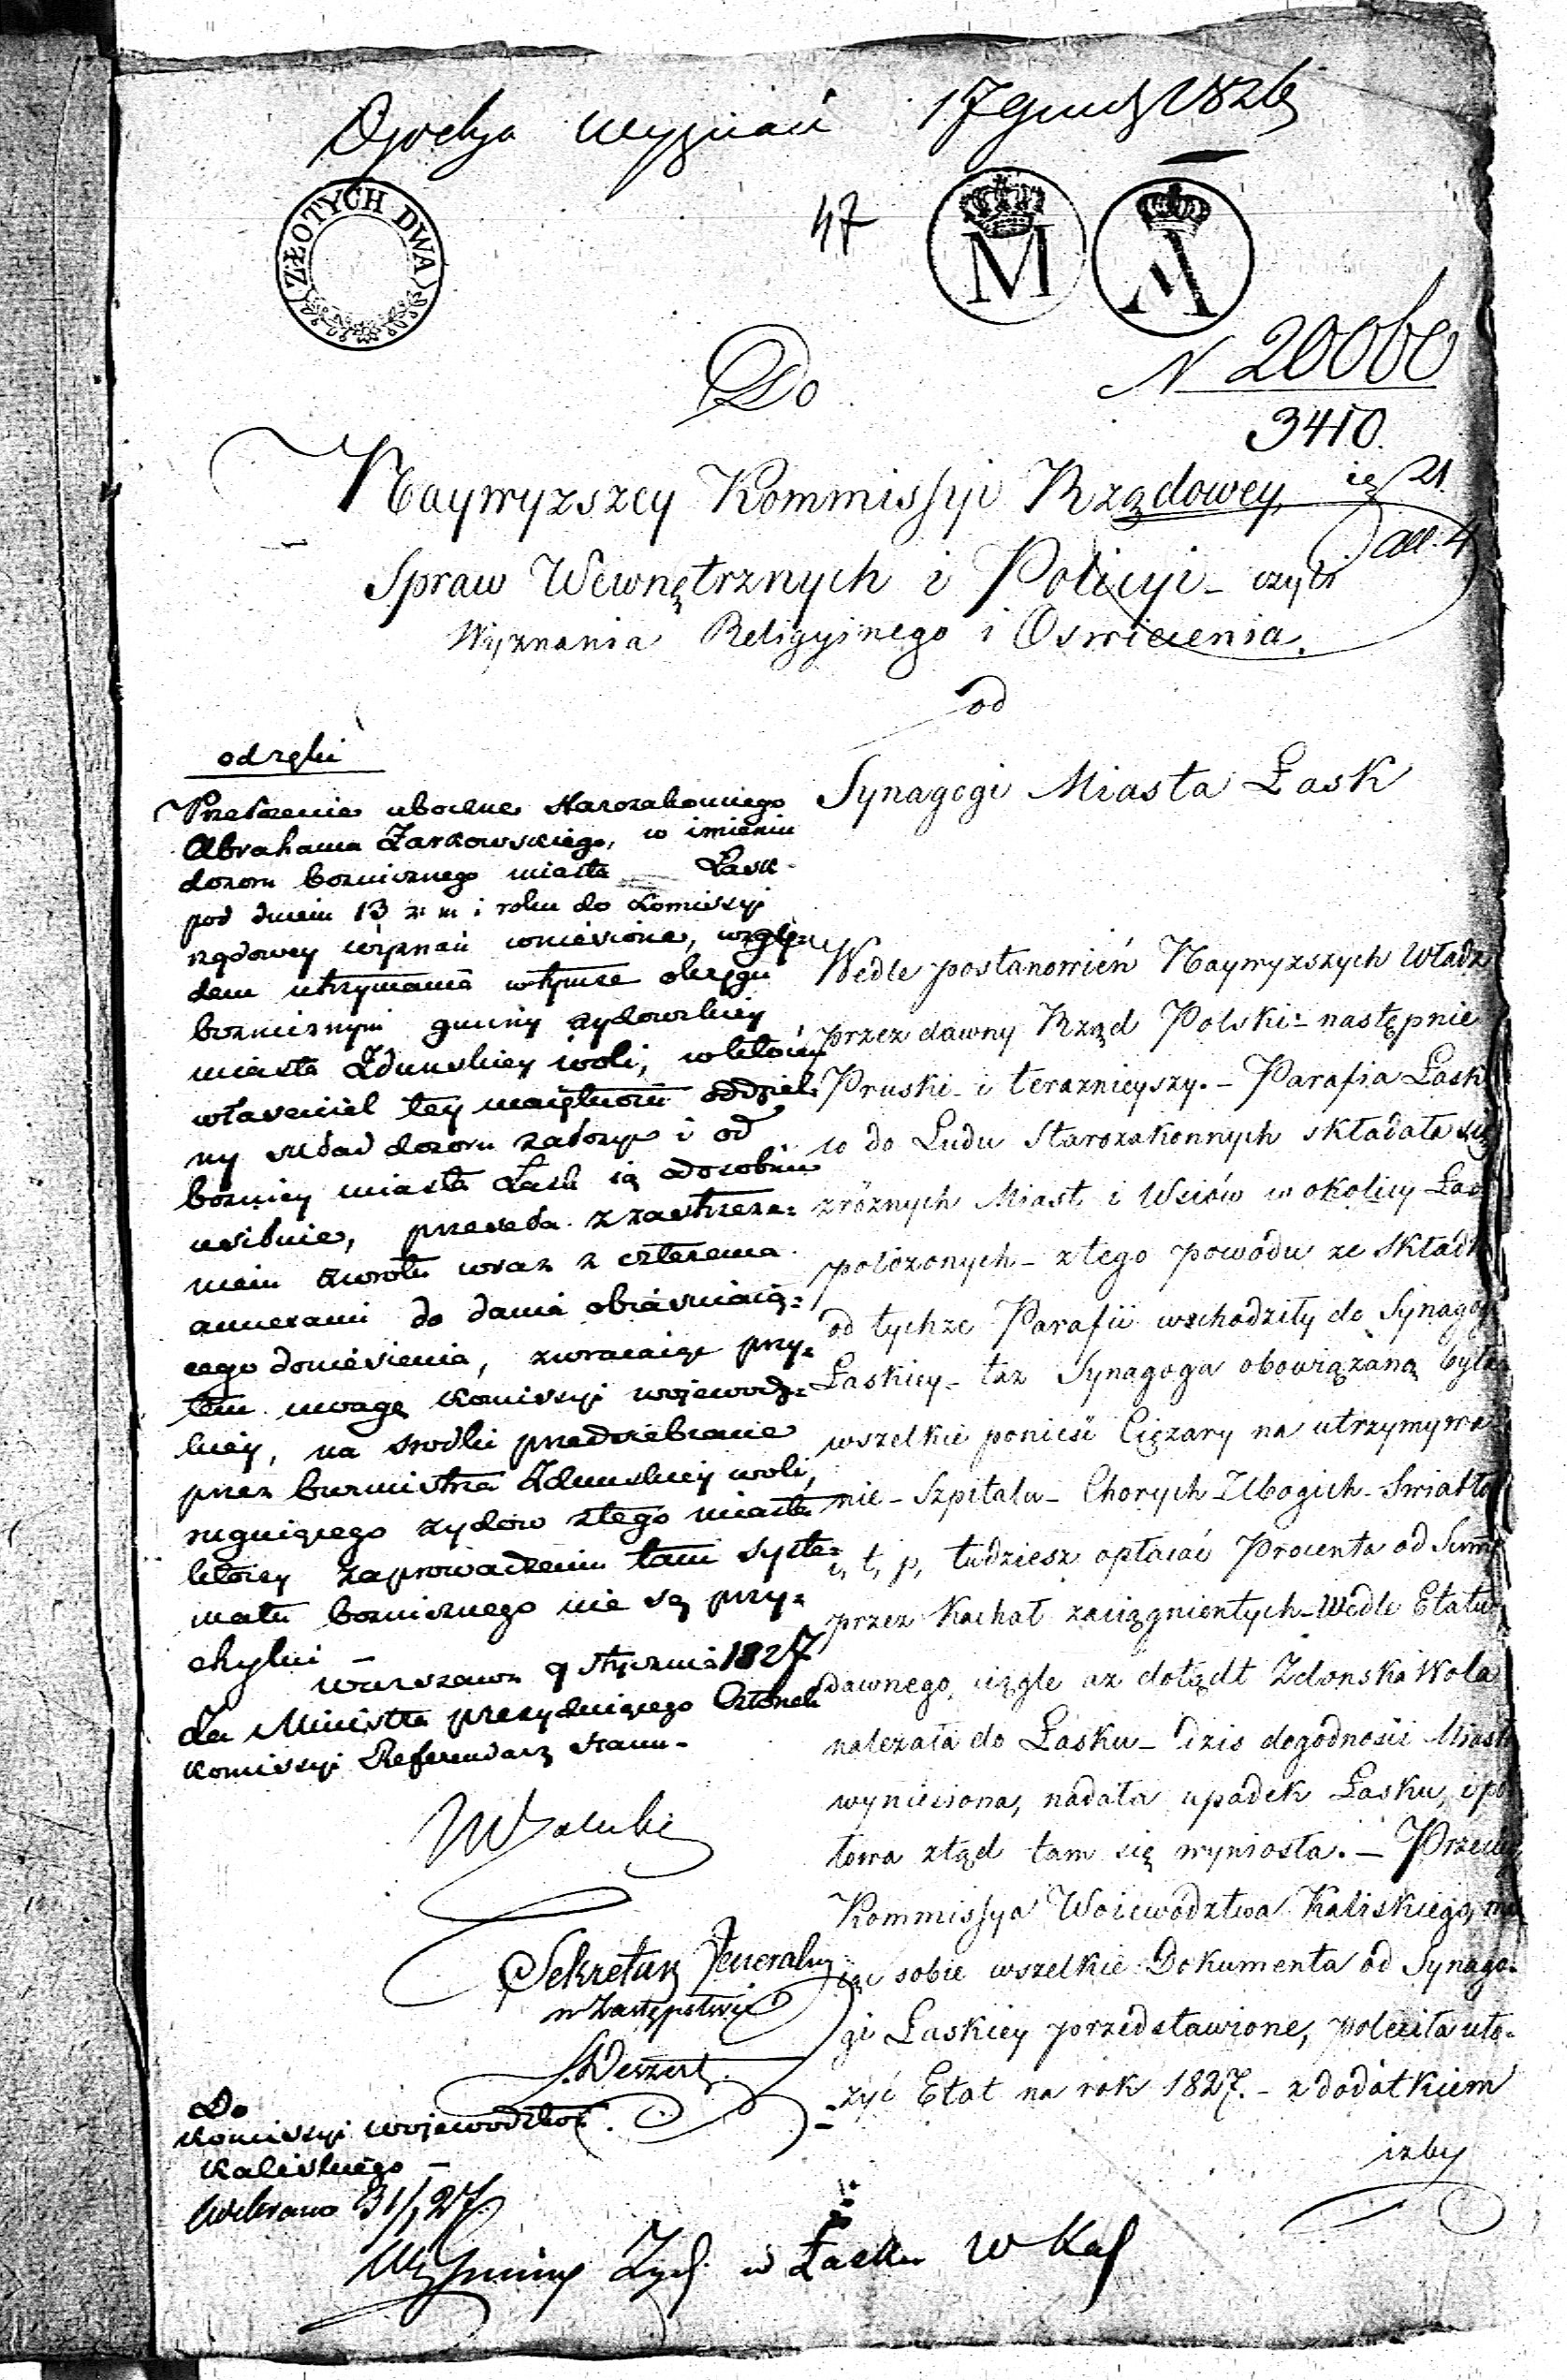 17 Grud 1826
ZŁOTYCH DWA
47
M
A
Do
N 20060
3410.
Naywyzszey Kommissyi Rządowey
Spraw Wewnętrznych i Policyi - czyli
Wyznania Religyinego i Oswiecenia.
od
Synagogi Miasta Łask
od ręki
Przełożenie uboczne Starozakonnego
Abrahama Żarkowskiego, w imieniu
dozoru bozniczego miasta Łask
pod dniem 13 z. m i roku do Komissyi
rządowey wyznań wniesione, wzglę-
dem utrzymania w tymże okręgu
bozniczym gminy żydowskiey
miasta Zduńskiey woli, w którey
właściciel tey maiętności oddziel-
ny skład dozoru założyć i od
boznicy miasta Łask ią odosobnić
usiłuie, przeseła z zastrzeże-
niem zwrotu wraz z czterema
annexami do dania obiaśniaią-
cego doniesienia, zwracaiąc przy-
tem uwagę Komissyi wojewódz-
kiey, na srodki przedsiebrane
przez burmistrza Zduńskiey woli,
ruguiącego zydów z tego miasta
którzy zaprowadzeniu tam syste-
matu bozniczego nie są przy-
chylni -
Warszawa 9 stycznia 1827
Za Ministra prezyduiącego Członek
Komissyi Referendarz Stanu -
Sekretarz Jeneralny
w Zastępstwie
Do
Komissyi Wojewodztwa
Kaliskiego -
31/1 27.
Wedle postanowień Naywyzszych Władz
przez dawny Rząd Polski - następnie
Pruski - i terazneyszy. - Parafia Łask
co do Ludu Starozakonnych składała się
zróznych Miast i Wsiów w okolicy Łas
położonych - ztego powodu ze składk
od tychze Parafii wschodziły do Synagog
Łaskiey - taz Synagoga obowiązaną była
wszelkie ponieść Ciężary na utrzymywa
nie - Szpitalu - Chorych - Ubogich - Swiatło
i, t, p, tudziesz opłacać Procenta od Summ
przez Kachał zaciągnientych - Wedle Etatu
dawnego, ciągle az dotądt Zdonska Wola
nalezała do Łasku - dzis dogodności Miast
wyniesiona, nadała upadek Łasku, i po
łowa ztąd tam się wyniosła. -
Kommissya Woiewodztwa Kaliskiego, ma
iąc sobie wszelkie Dokumenta od Synago-
gi Łaskiey przedstawione, poleciła uło-
zyć Etat na rok 1827. - z dodatkiem
izby
w Łasku W Kal